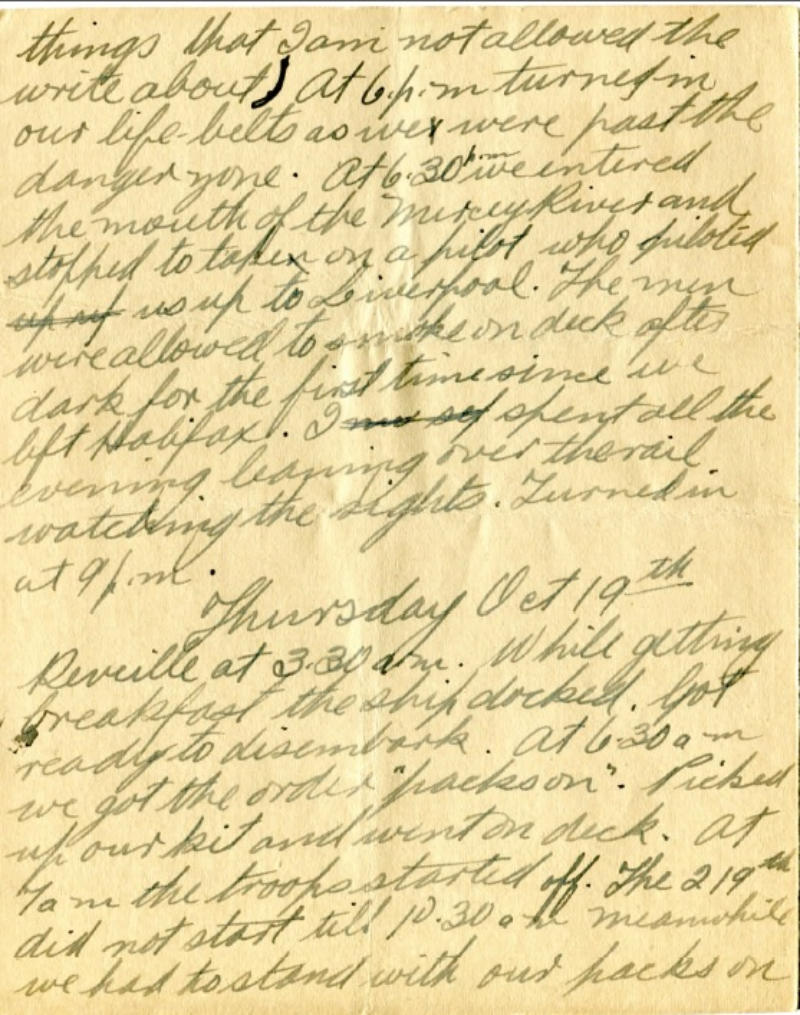 things that I am not allowed the
write about) At 6 p.m turned in
our life-belts as wex were past the
danger zone. At 6.30 p.m we entered
the mouth of the Mercey River and
stopped to taken on a pilot who piloted
us up to Liverpool. The men
were allowed to smoke on deck after
dark for the first time since we
left Halifax. I spent all the
evening leaning over the rail
watching the sights. Turned in
at 9 p.m.
Thursday Oct 19th
Reveille at 3.30 a.m. While getting
breakfast the ship docked. Got
ready to disembark. At 6.30 a-m
we got the order "packs on". Picked
up our kit and went on deck. At
7 a m the troops started off. The 219th
did not start till 10.30 a-m meanwhile
we had to stand with our packs on